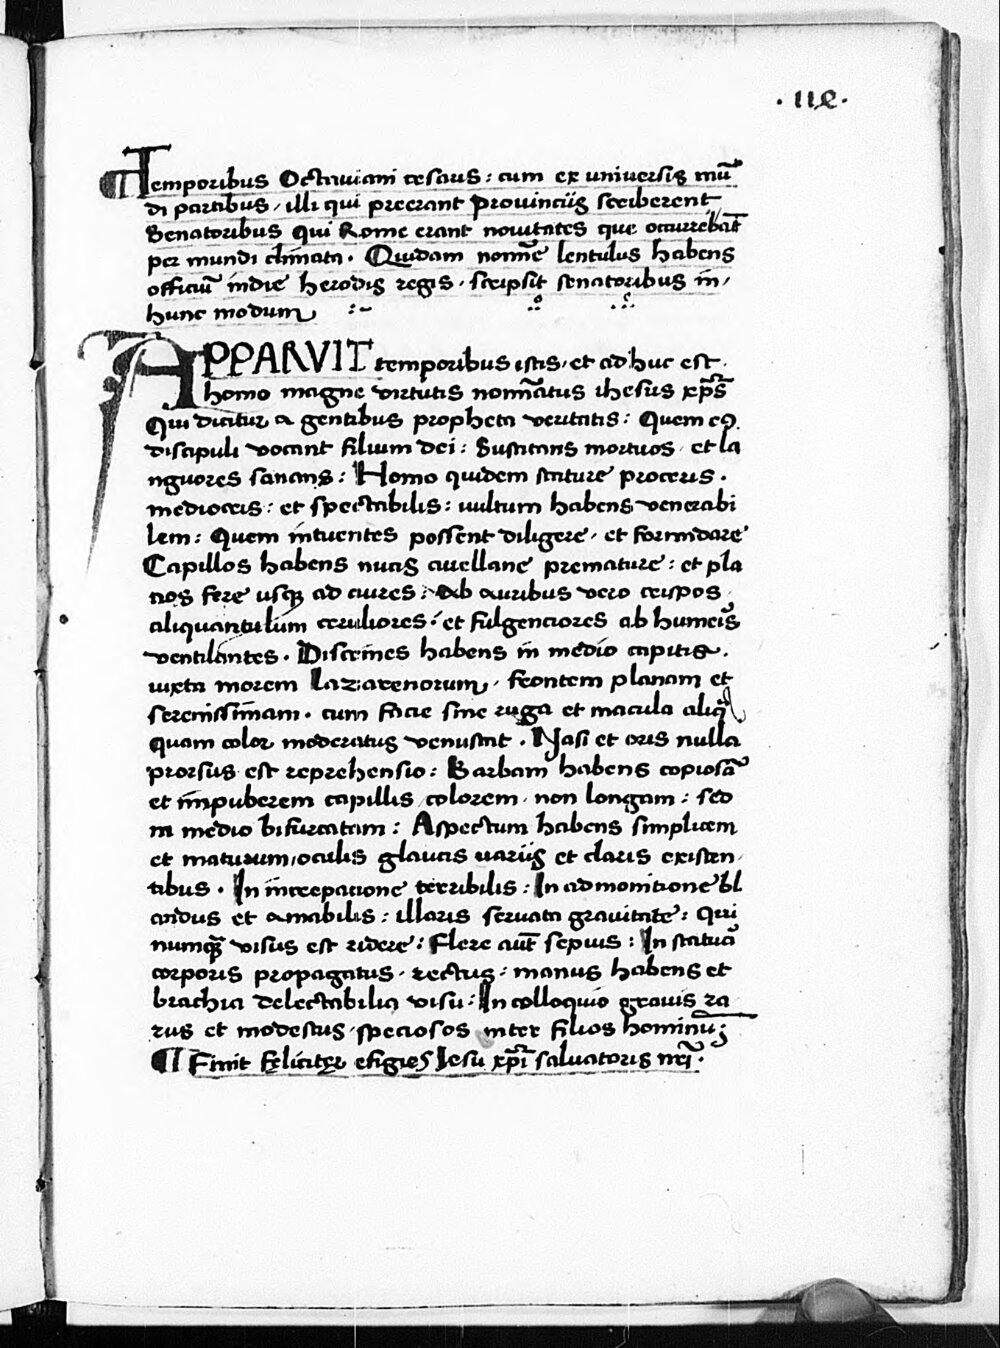 · IIQ ·
¶ Temporibus Octaviani cesaris : cum ex universis mū
di partibus , illi qui preerant Provinciis scriberent
Senatoribus qui Rome erant novitates que occurrebāt
per mundi climata . Quidam nomīe lentulus habens
officiū indie herodis regis . scripsit senatoribus in ,
hunc modum
APPARVIT temporibus istis , et ad huc est .
homo magne virtutis nomīatus ihesus xp̄s
Qui dicitur a gentibus propheta veritatis : Quem
discipuli vocant filium dei : Suscitans mortuos , et la
nguores sanans : Homo quidem stature proceris .
mediocris : et spectabilis : vultum habens venerabi
lem : Quem intuentes possent diligere , et formidare
Capillos habens nucis avellane premature : et pla
nos fere usq ad aures : Ab auribus vero crispos .
aliquantulum ceruliores : et fulgenciores ab humeris
ventilantes . Discrimes habens in medio capitis .
iuxta morem Lazarenorum , frontem planam et
serenissimam . cum facie sine ruga et macula aliq
quam color moderatus venustat . Nasi et oris nulla
prorsus est reprehensio : Barbam habens copiosā
et impuberem capillis colorem . non longam : sed
in medio bifurcatam : Aspectum habens simplicem
et maturum , oculis glaucis variis et claris existen ,
tibus . In increpacione terribilis : In admonitione bl
andus et amabilis : illaris servata gravitate : Qui
numq̄ visus est ridere : Flere aut̄ sepius : In statura
corporis propagatus . rectus : manus habens et
brachia delectabilia visu : In colloquio gravis ra
rus et modestus , speciosos inter filios hominū ;
¶ Finit feliciter efigies Iesu xp̄i salvatoris nr̄i .